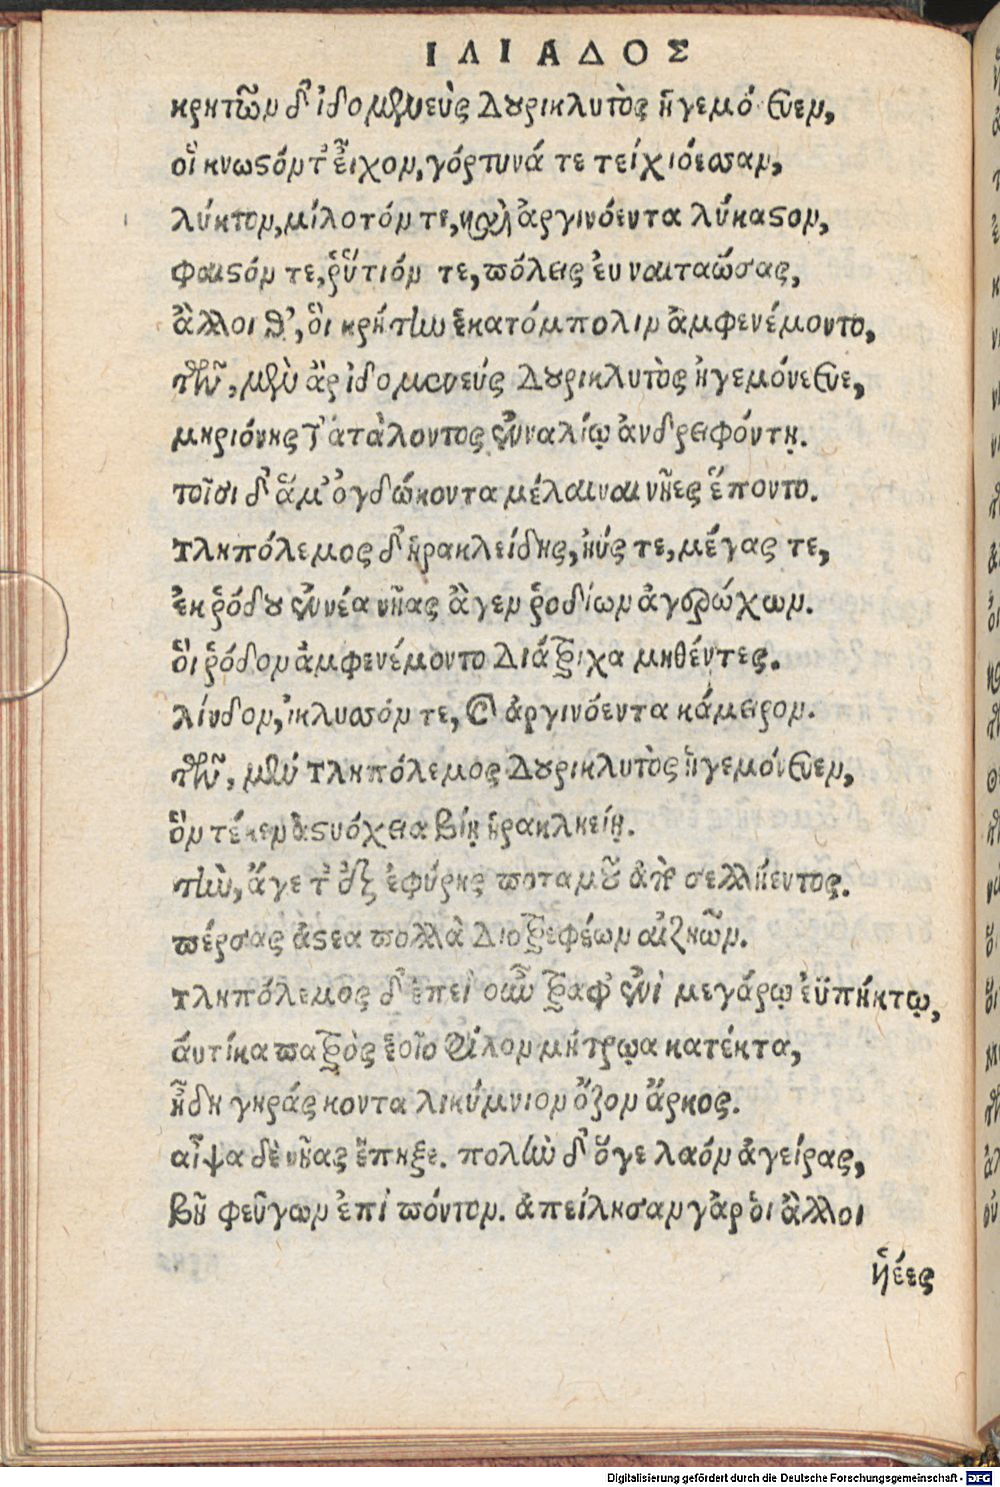 ΙΛΙΑΔΟΣ
κρητῶν δ' ἰδομενεὺς δουρικλυτὸς ἡγεμόνευεν,
οἳ κνωσόν τ' εἶχον, γόρτυνά τε τειχιόεσσαν,
λύκτον, μίλοτόν τε, καὶ ἀργινόεντα λύκαστον,
φαιστόν τε, ῥύτιόν τε, πόλεις ἐυναιταώσας,
ἄλλοι θ', οἳ κρήτην ἑκατόμπολιν ἀμφενέμοντο,
τῶν, μὲν ἂρ ἰδομενεύς δουρικλυτὸς ἡγεμόνευε,
μηριόνης τ' ἀτάλαντος ἐνυαλίῳ ἀνδρειφόντῃ.
τοῖσι δ' ἅμ' ὀγδώκοντα μέλαιναι νῆες ἕποντο.
τληπόλεμος δ' ἡρακλείδης, ἠύς τε, μέγας τε,
ἐκ ῥόδου ἐννέα νῆας ἄγεν ῥοδίων ἀγερώχων.
οἳ ῥόδον ἀμφενέμοντο διάτριχα μηθέντες.
λίνδον, ἰκλυσσόν τε, καὶ ἀργινόεντα κάμειρον.
τῶν, μὲν τληπόλεμος δουρικλυτὸς ἡγεμόνευεν,
ὃν τέκεν ἀστυόχεια βίῃ ἡρακληείῃ.
τὴν, ἄγετ' ἐξ ἐφύρης ποταμοῦ ἀπὸ σελλήεντος.
πέρσας ἄστεα πολλὰ διοτρεφέων αἰζηῶν.
τληπόλεμος δ' ἐπεὶ οὖν τράφ' ἐνὶ μεγάρῳ ἐϋπήκτῳ,
αὐτίκα πατρὸς ἑοῖο φίλον μήτρωα κατέκτα,
ἤδη γηράσκοντα λικύμνιον ὄζον ἄρηος.
αἶψα δὲ νῆας ἔπηξε. πολὺν δ' ὅγε λαὸν ἀγείρας,
βῆ φεύγων ἐπὶ πόντον. ἀπείλησαν γὰρ οἱ ἄλλοι
ἡέες
Digitalisierung gefördert durch die Deutsche Forschungsgemeinschaft - DFG